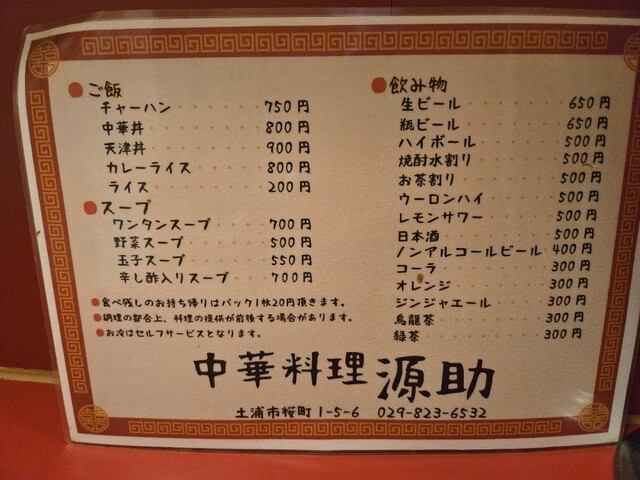 ●ご飯
チャーハン 750円
中華丼 800円
天津丼 900円
カレーライス 800円
ライス 200円
●スープ
ワンタンスープ 700円
野菜スープ 500円
玉子スープ 550円
辛し酢入りスープ 700円
●食べ残しのお持ち帰りはパック1枚20円頂きます。
●調理の都合上、料理の提供が前後する場合があります。
●お冷はセルフサービスとなります。
●飲み物
生ビール 650円
瓶ビール 650円
ハイボール 500円
焼酎水割り 500円
お茶割り 500円
ウーロンハイ 500円
レモンサワー 500円
日本酒 500円
ノンアルコールビール 400円
コーラ 300円
オレンジ 300円
ジンジャエール 300円
烏龍茶 300円
緑茶 300円
中華料理 源助
土浦市桜町1-5-6 029-823-6532